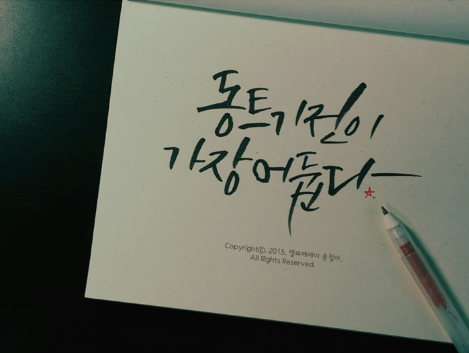 동트기전이
가장 어둡다
Copyrightⓒ, 2015, 캘리에세이 응집아.
All Rights Reserved.